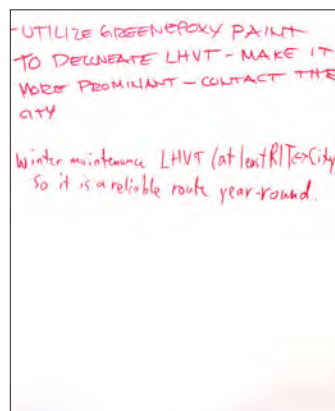 -UTILIZE GREEN EPOXY PAINT
TO DELINEATE LHVT - MAKE IT
MORE PROMINANT - CONTACT THE
CITY
Winter maintenance LHVT (at least RIT<->City)
So it is a reliable route year-round.